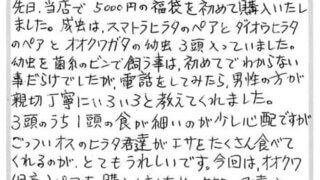 先日、当店で5000円の福袋を初めて購入いたし
ました。成虫は、スマトラヒラタのペアとダイオウヒラタ
のペアと オオクワガタの幼虫3頭入っていました。
幼虫を菌糸のビンで飼う事は、初めてでわからない
事だらけでしたが、電話をしてみたら、男性の方が
親切丁寧にいろいろと教えてくれました。
3頭のうち1頭の食が細いのが少し心配ですが
ごっついオスのヒラタ君達がエサをたくさん食べて
くれるのが、とてもうれしいです。今回は、オオクワ